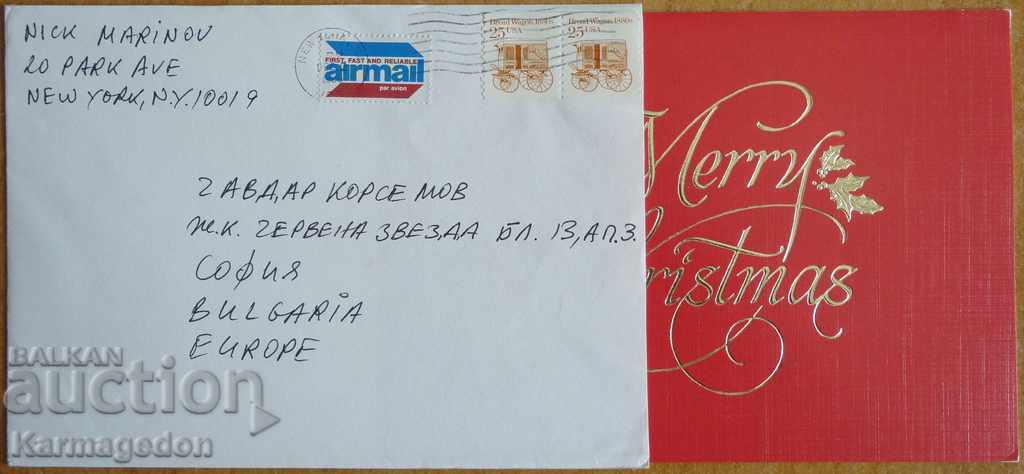 NICK MARINOV
20 PARK AVE
NEW YORK, N.Y. 10019
FIRST, FAST AND RELIABLE
airmail
par avion
Bread Wagon 1880s
25 USA
Bread Wagon 1880s
25 USA
ЧАВДАР КОРСЕМОВ
Ж.К. ЧЕРВЕНА ЗВЕЗДА БЛ. 13, АП. 3.
СОФИЯ
BULGARIA
EUROPE
Merry
Christmas
BALKAN
auction
Karmagedon